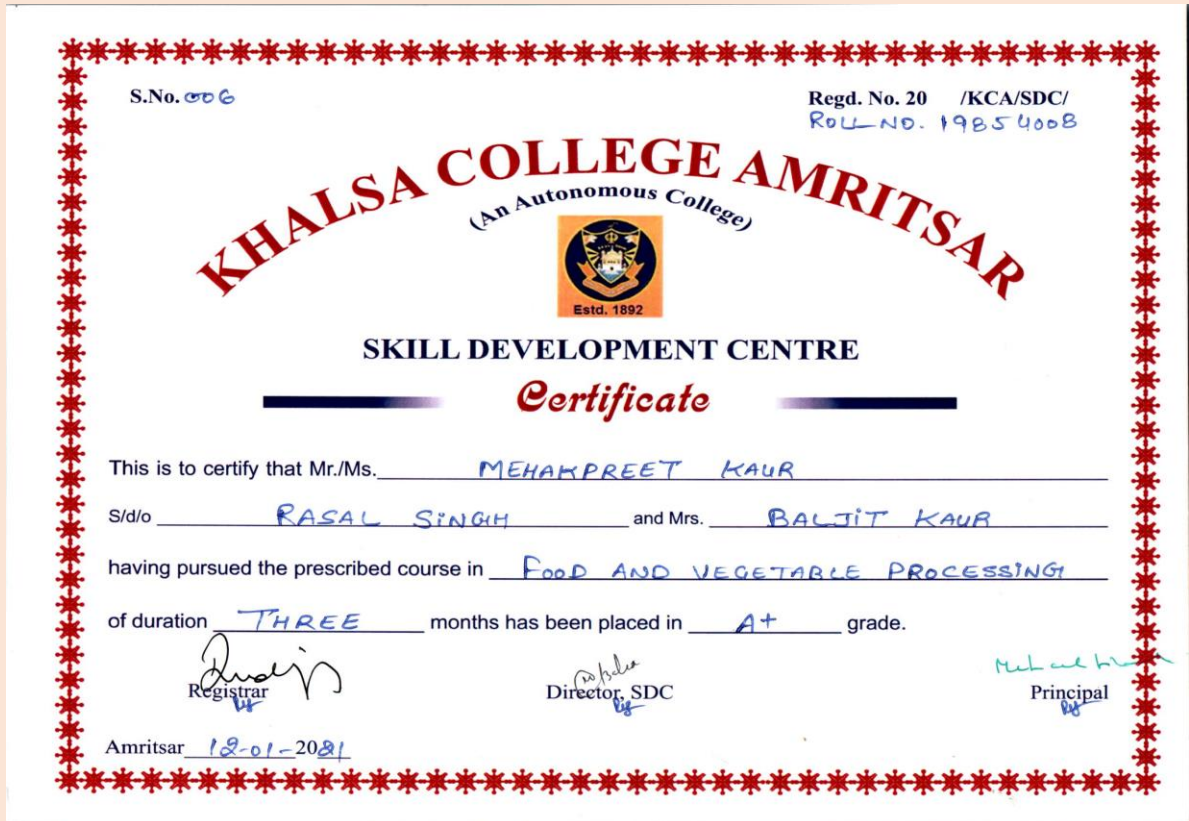 S.No. 006
Regd. No. 20 /KCA/SDC/
ROLL NO. 19854008
KHALSA COLLEGE AMRITSAR
(An Autonomous College)
Estd. 1892
SKILL DEVELOPMENT CENTRE
Certificate
This is to certify that Mr./Ms. MEHAKPREET KAUR
S/d/o RASAL SINGH and Mrs. BALJIT KAUR
having pursued the prescribed course in FOOD AND VEGETABLE PROCESSING
of duration THREE months has been placed in A+ grade.
Registrar Director, SDC Principal
Amritsar 12-01-2021